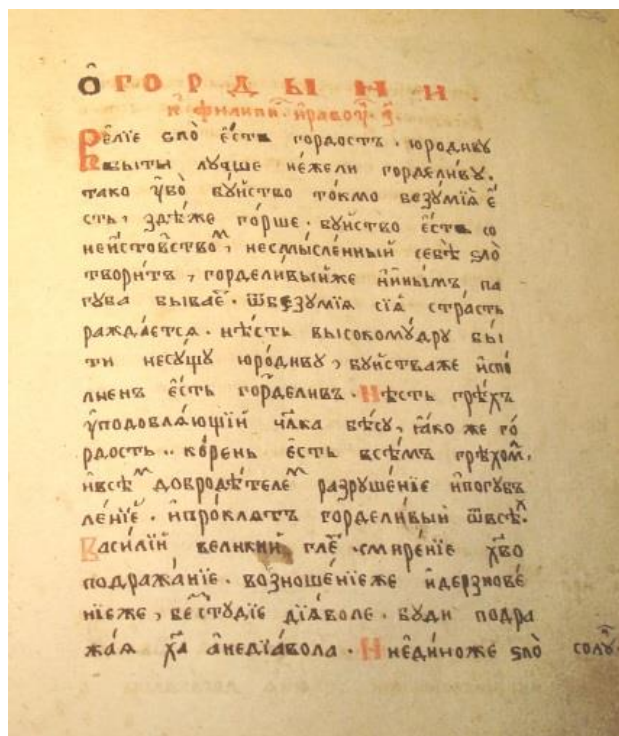 Ѡ҆ ГОРДЫНИ.
к҃ филипи҃. нравоуч҃. з҃.
Велїе ѕло̀ є҆́сть гордость. юродиву
быти лу́чше не́жели горделѝву.
тако ᲂу҆́бо бу́йство то́кмо безу́мїѧ є҆́
сть, здѣ́же го́рше. бу́йство є҆́сть со
неи́стовство́м, несмы́сленный себѣ̀ ѕло̀
твори́тъ, горделивый́же и҆ и҆ны́мъ, па
губа бывае́. ѿбезу́мїѧ сїѧ̀ стра́сть
ражда́етсѧ. нѣ́сть высокому́дру бы́
ти несу́щу юро́диву, бу́йстваже и҆спо́
лненъ є҆́сть го́рделивъ. Нѣ́сть грѣ́хъ
ᲂу҆подоблѧ́ющїй чл҃ка бѣ́су, ꙗ҆́ко же го́
рдость. ко́рень є҆́сть всѣ́мъ грѣхо́м,
и҆всѣ́м добродѣ́теле́м разруше́нїе и҆погубъ
ле́нїе. и҆про́клѧтъ горделивый ѿвсѣ́х.
Васи́лїй вели́кий гл҃е. смире́нїе хв҃о
подража́нїе. возноше́нїеже и҆дерзнове́
нїеже, бесту́дїе дїѧ́воле. буди подра
жа́ѧ хр҃а̀ а҆недїѧ́вола. Ниє҆ди́ноже ѕло̀ солу҃